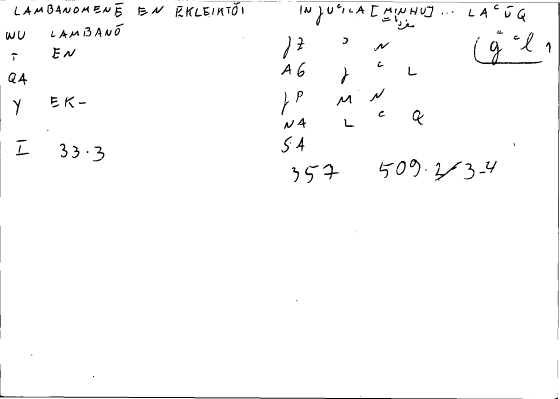 LAMBANOMENĒ EN EKLEIKTŌI
WU LAMBANŌ
T EN
QA
Y EK-
I 33.3
IN JUᶜILA [MINHU] ... LAᶜŪQ
JZ ʾ N
AG J ᶜ L
JP M N
NA L ᶜ Q
SA
357 509.2/3-4
(gᶜl)